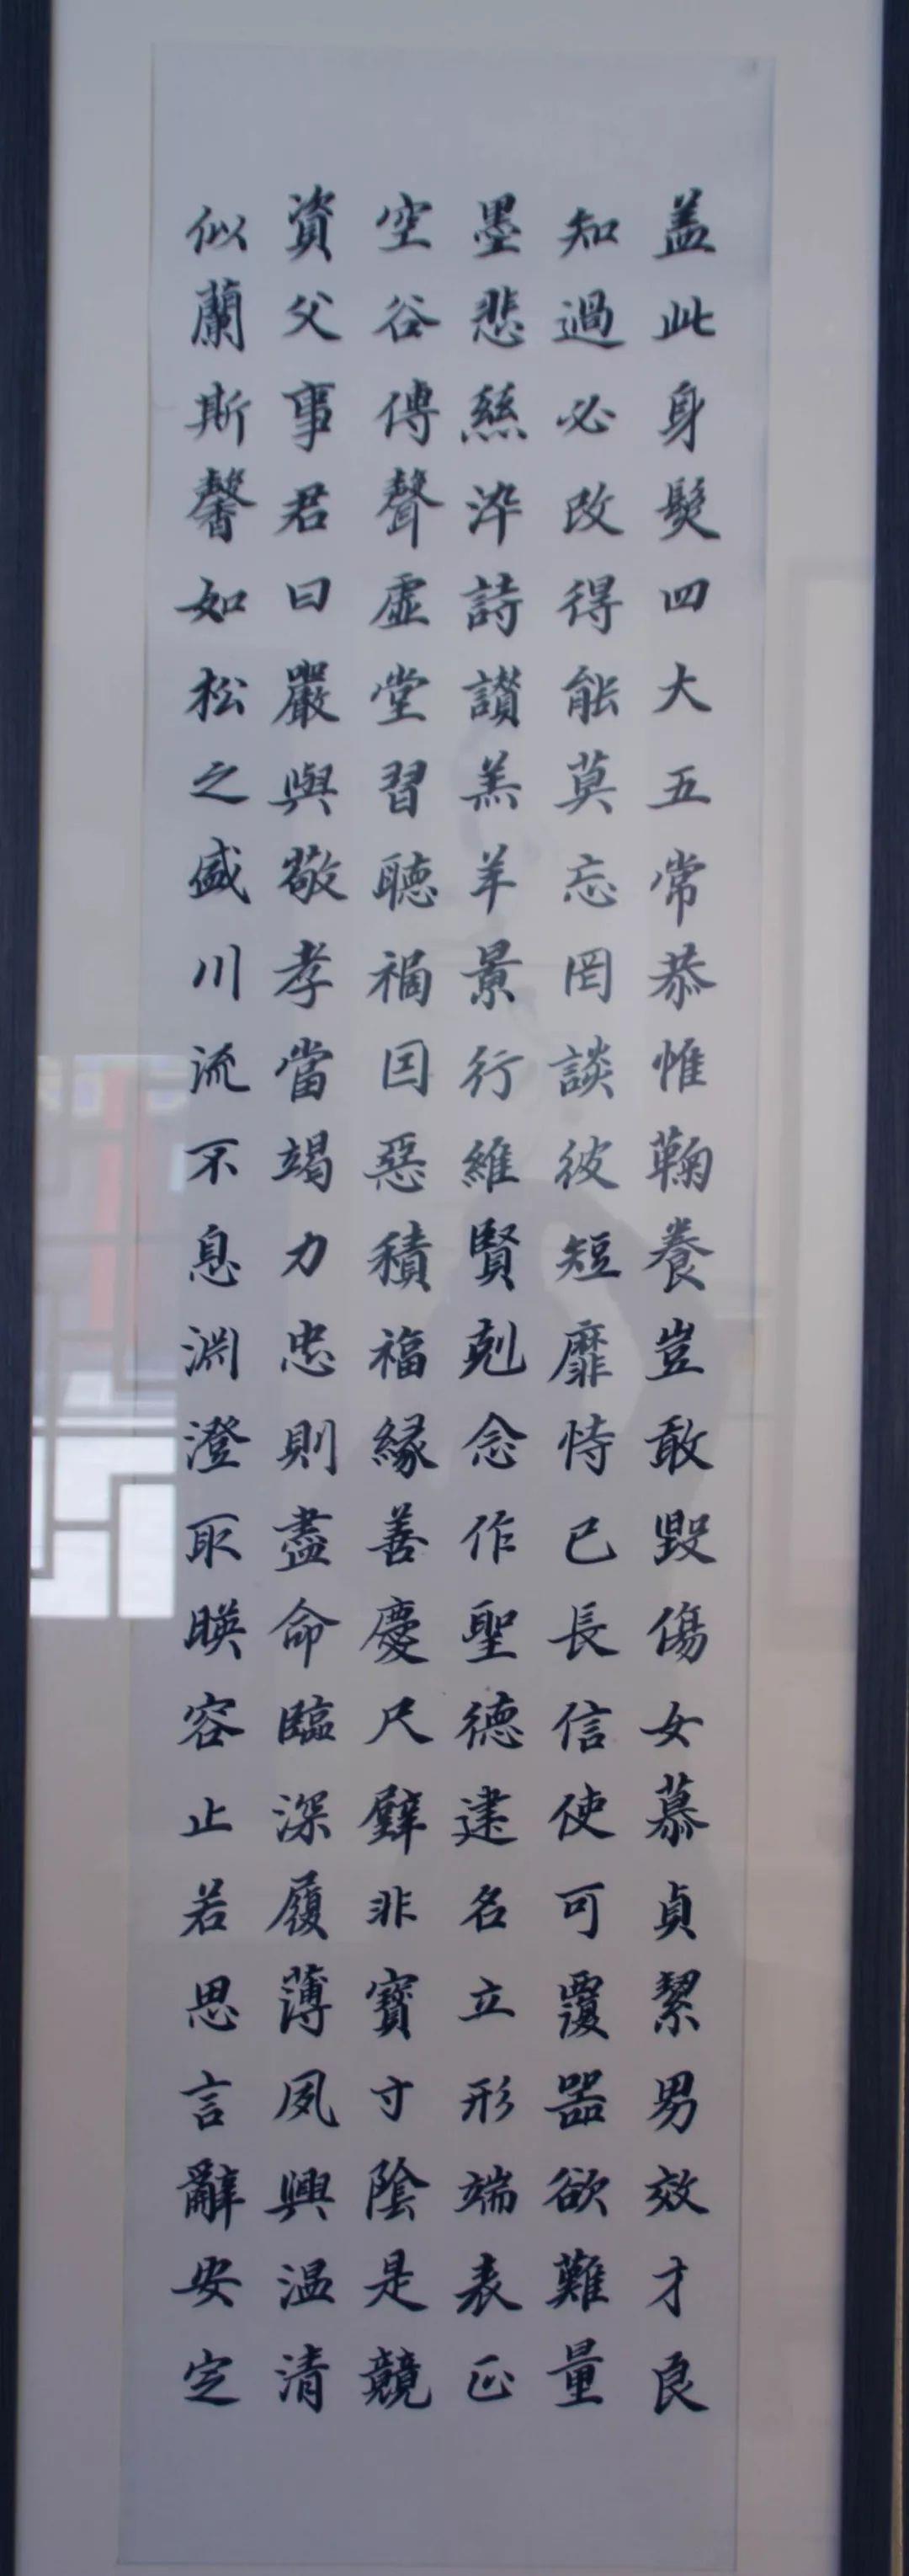 盖此身髮四大五常恭惟鞠養豈敢毀傷女慕貞絜男效才良
知過必改得能莫忘罔談彼短靡恃己長信使可覆器欲難量
墨悲絲淬詩讃羔羊景行維賢剋念作聖德建名立形端表正
空谷傳聲虛堂習聽禍因惡積福緣善慶尺璧非寶寸陰是競
資父事君曰嚴與敬孝當竭力忠則盡命臨深履薄夙興温清
似蘭斯馨如松之盛川流不息淵澄取暎容止若思言辭安定